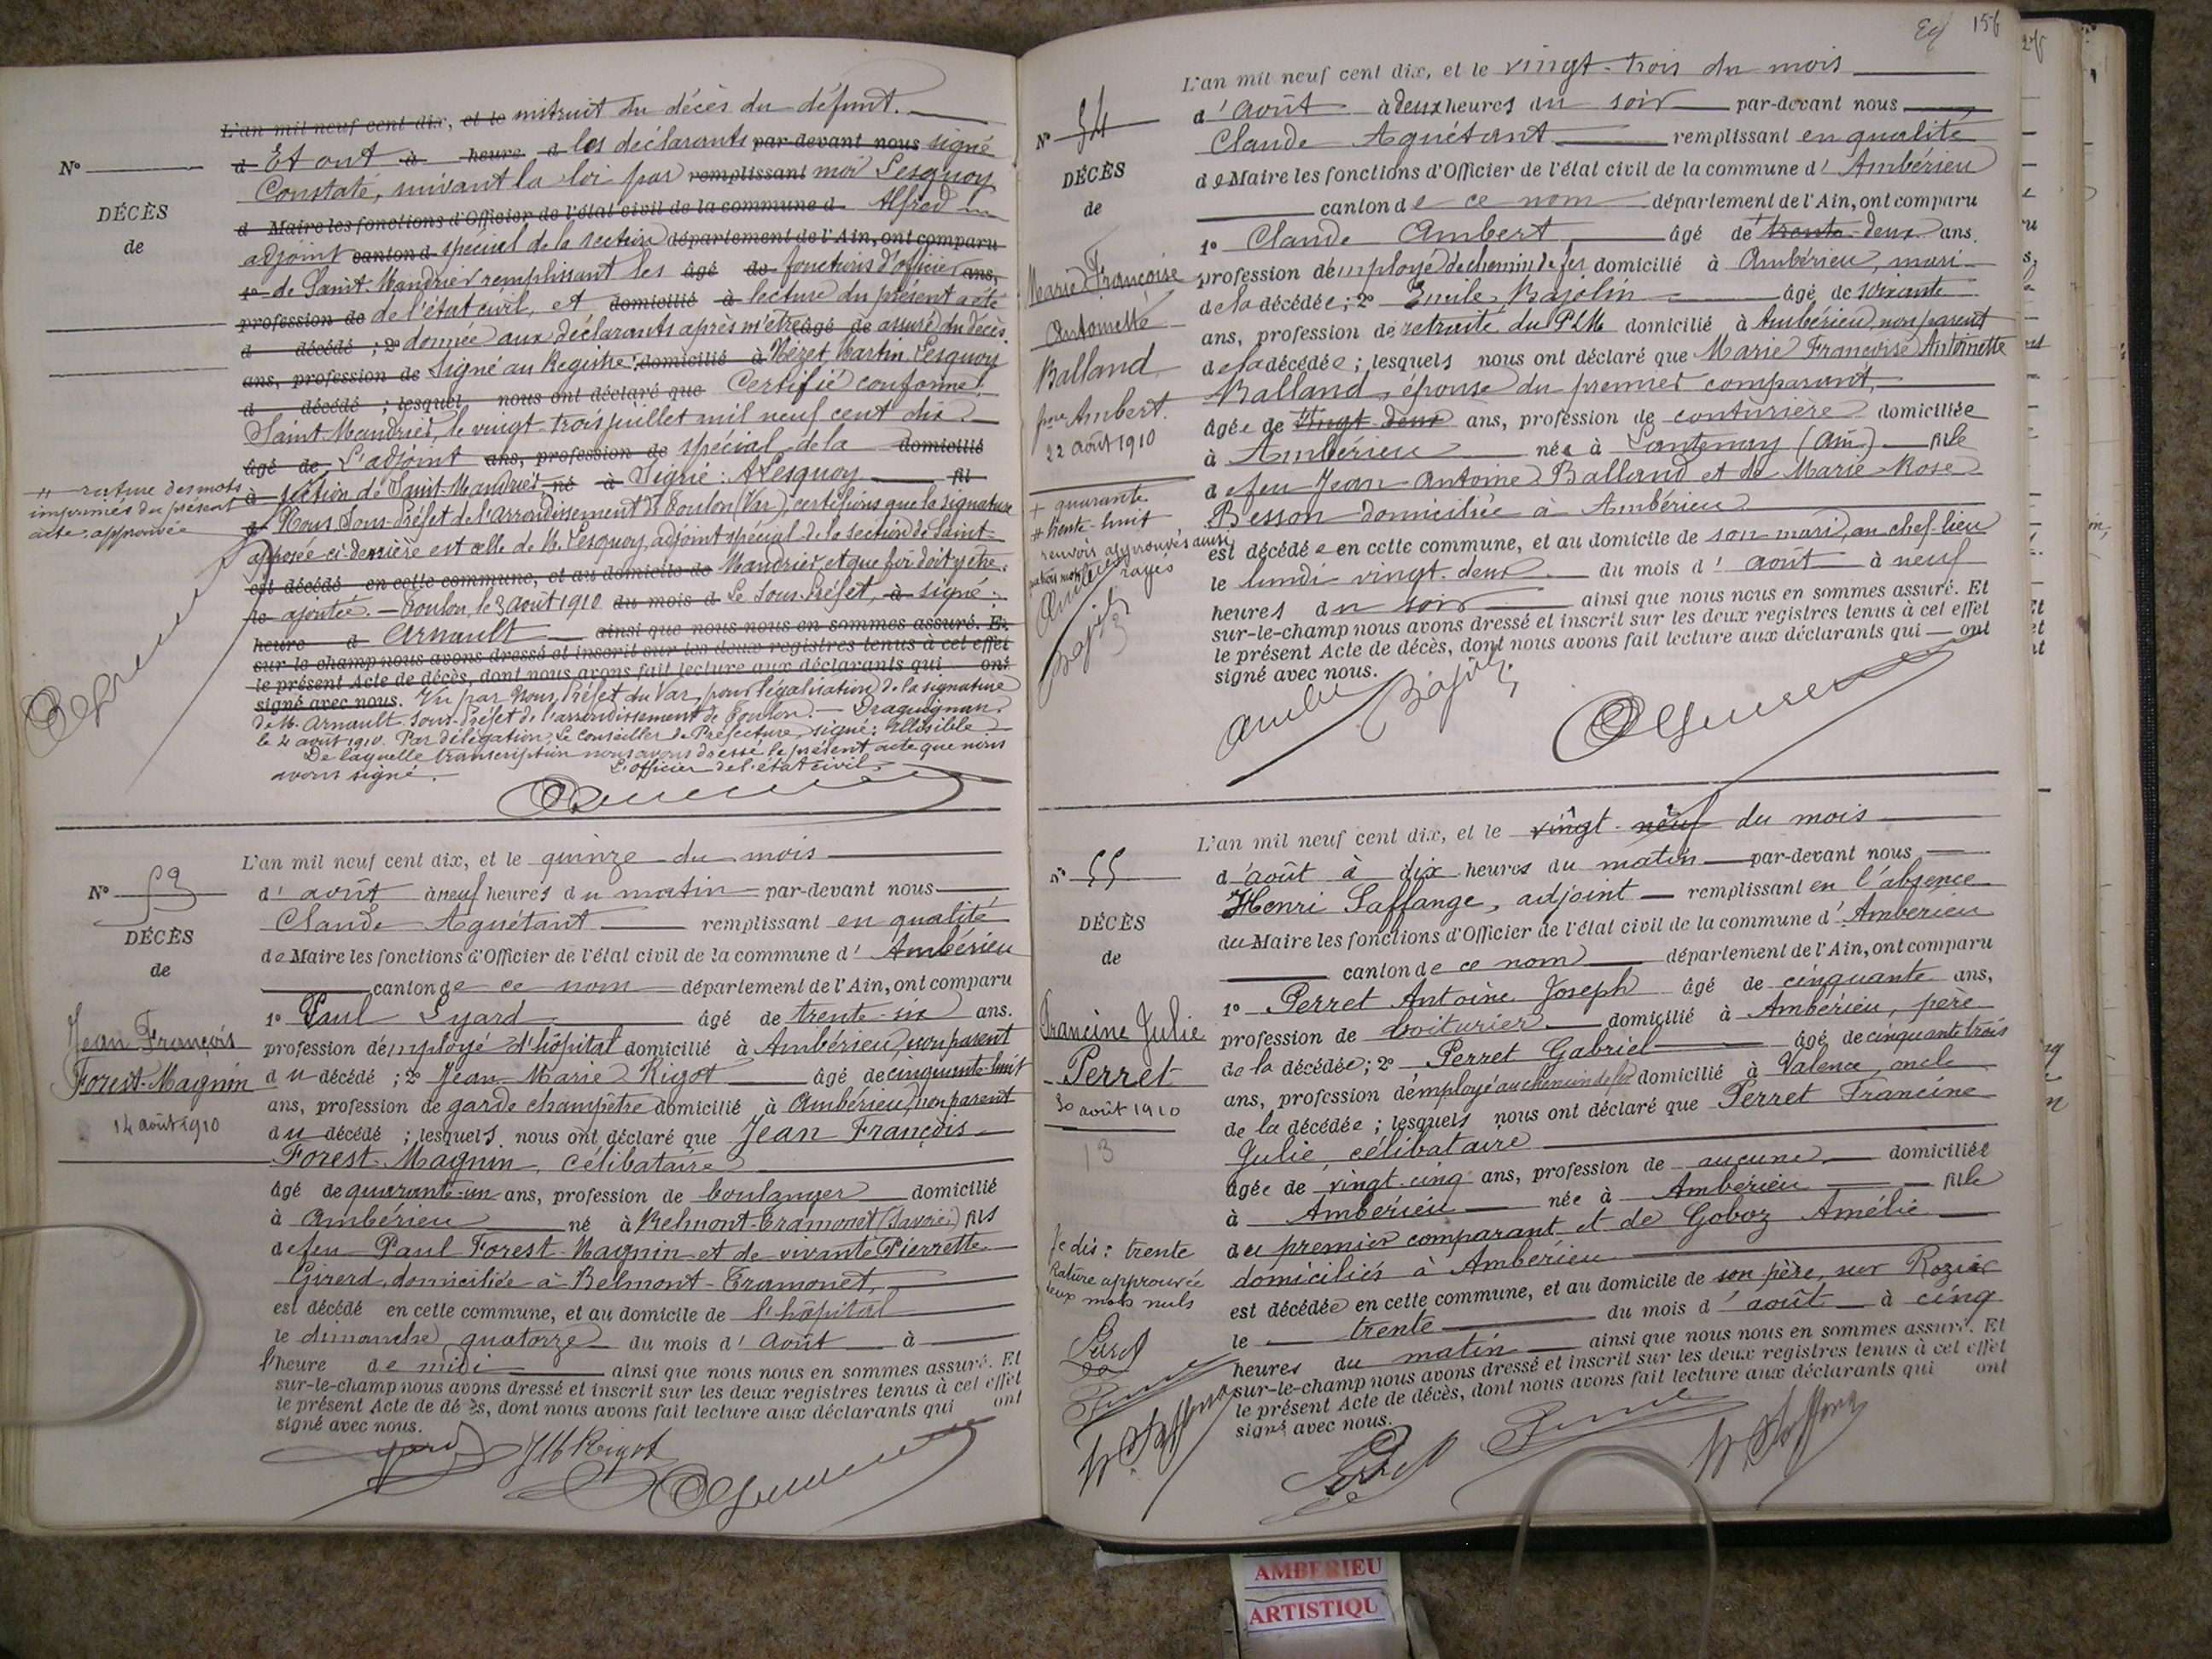 L'an mil neuf cent dix, et le instruit du décès du défunt.
d Et ont à heure d les déclarants par-devant nous signé
Constaté, suivant la loi par remplissant moi Lesquoy
d Maire les fonctions d'Officier de l'état civil de la commune d Alfred
adjoint canton d spécial de la section département de l'Ain, ont comparu
1° de Saint Mandrier remplissant les âgé de fonctions d'officier ans,
profession de de l'état civil, et domicilié à lecture du présent acte
d décédé ; 2° donnée aux déclarants après m'être âgé de assuré du décès.
ans, profession de Signé au Registre: domicilié à Nézet, Martin, Lesquoy
d décédé ; lesquel nous ont déclaré que Certifié conforme.
Saint Mandrier, le vingt-trois juillet mil neuf cent dix.
âgé de L'adjoint ans, profession de spécial de la domicilié
à section de Saint-Mandrier, né à Signé: A Lesquoy fil
d Nous Sous-Préfet de l'arrondissement de Toulon (Var), certifions que la signature
apposée ci-dernière est celle de M. Lesquoy, adjoint spécial de la section de Saint-
est décédé en cette commune, et au domicile de Mandrier, et que foi doit y être
le ajoutée. — Toulon, le 3 août 1910 du mois d Le Sous-Préfet, à signé:
heure d Arnault ainsi que nous nous en sommes assuré. Et
sur-le-champ nous avons dressé et inscrit sur les deux registres tenus à cet effet
le présent Acte de décès, dont nous avons fait lecture aux déclarants qui ont
signé avec nous. Vu par Nous, Préfet du Var, pour légalisation de la signature
de M. Arnault Sous-Préfet de l'arrondissement de Toulon. — Draguignan,
le 4 août 1910. Par délégation, Le Conseiller de Préfecture, signé: Illisible
De laquelle transcription nous avons dressé le présent acte que nous
avons signé. L'officier de l'état civil,
N°
DÉCÈS
de
rature des mots
imprimés du présent
acte approuvée
N° 53
DÉCÈS
de
Jean François
Forest-Magnin
14 août 1910
L'an mil neuf cent dix, et le quinze du mois
d' août à neuf heures du matin par-devant nous
Claude Aguétant remplissant en qualité
de Maire les fonctions d'Officier de l'état civil de la commune d' Ambérieu
canton de ce nom département de l'Ain, ont comparu
1° Paul Syard âgé de trente-six ans.
profession d'employé d'hôpital domicilié à Ambérieu, non parent
du décédé ; 2° Jean-Marie Rigot âgé de cinquante-huit
ans, profession de garde champêtre domicilié à Ambérieu, non parent
du décédé ; lesquels nous ont déclaré que Jean François
Forest-Magnin, célibataire
âgé de quarante-un ans, profession de boulanger domicilié
à Ambérieu né à Belmont-Tramonet (Savoie) fils
de feu Paul Forest-Magnin et de vivante Pierrette
Girerd, domiciliée à Belmont-Tramonet,
est décédé en cette commune, et au domicile de l'hôpital
le dimanche quatorze du mois d' Août à
l'heure de midi ainsi que nous nous en sommes assuré. Et
sur-le-champ nous avons dressé et inscrit sur les deux registres tenus à cet effet
le présent Acte de décès, dont nous avons fait lecture aux déclarants qui ont
signé avec nous.
JM Rigot
156
N° 54
DÉCÈS
de
Marie Françoise
Antoinette
Balland
fme Ambert
22 août 1910
+ quarante
# trente-huit
renvois approuvés ainsi
rayés
L'an mil neuf cent dix, et le vingt-trois du mois
d' août à deux heures du soir par-devant nous
Claude Aguétant remplissant en qualité
de Maire les fonctions d'Officier de l'état civil de la commune d' Ambérieu
canton de ce nom département de l'Ain, ont comparu
1° Claude Ambert âgé de trente-deux ans.
profession d'employé de chemin de fer domicilié à Ambérieu, mari
de la décédée ; 2° Emile Bajolin âgé de soixante
ans, profession de retraité du PLM domicilié à Ambérieu, non parent
de la décédée ; lesquels nous ont déclaré que Marie Françoise Antoinette
Balland, épouse du premier comparant,
âgée de Vingt-deux ans, profession de couturière domiciliée
à Ambérieu née à Santenay (Ain) fille
de feu Jean Antoine Balland et de Marie Rose
Besson domiciliée à Ambérieu
est décédée en cette commune, et au domicile de son mari, au chef-lieu
le lundi vingt-deux du mois d' août à neuf
heures du soir ainsi que nous nous en sommes assuré. Et
sur-le-champ nous avons dressé et inscrit sur les deux registres tenus à cet effet
le présent Acte de décès, dont nous avons fait lecture aux déclarants qui ont
signé avec nous.
N° 55
DÉCÈS
de
Francine Julie
Perret
30 août 1910
13
Je dis: trente
Rature approuvée
deux mots nuls
L'an mil neuf cent dix, et le vingt-neuf du mois
d'août à dix heures du matin par-devant nous
Henri Laffange, adjoint remplissant en l'absence
du Maire les fonctions d'Officier de l'état civil de la commune d' Ambérieu
canton de ce nom département de l'Ain, ont comparu
1° Perret Antoine Joseph âgé de cinquante ans,
profession de voiturier domicilié à Ambérieu, père
de la décédée ; 2° Perret Gabriel âgé de cinquante trois
ans, profession d'employé au chemin de fer domicilié à Valence, oncle
de la décédée ; lesquels nous ont déclaré que Perret Francine
Julie, célibataire
âgée de vingt-cinq ans, profession de aucune domiciliée
à Ambérieu née à Ambérieu fille
du premier comparant et de Goboz Amélie
domiciliés à Ambérieu
est décédée en cette commune, et au domicile de son père, sur Rozier
le trente du mois d' août à cinq
heures du matin ainsi que nous nous en sommes assuré. Et
sur-le-champ nous avons dressé et inscrit sur les deux registres tenus à cet effet
le présent Acte de décès, dont nous avons fait lecture aux déclarants qui ont
signé avec nous.
AMBERIEU
ARTISTIQU